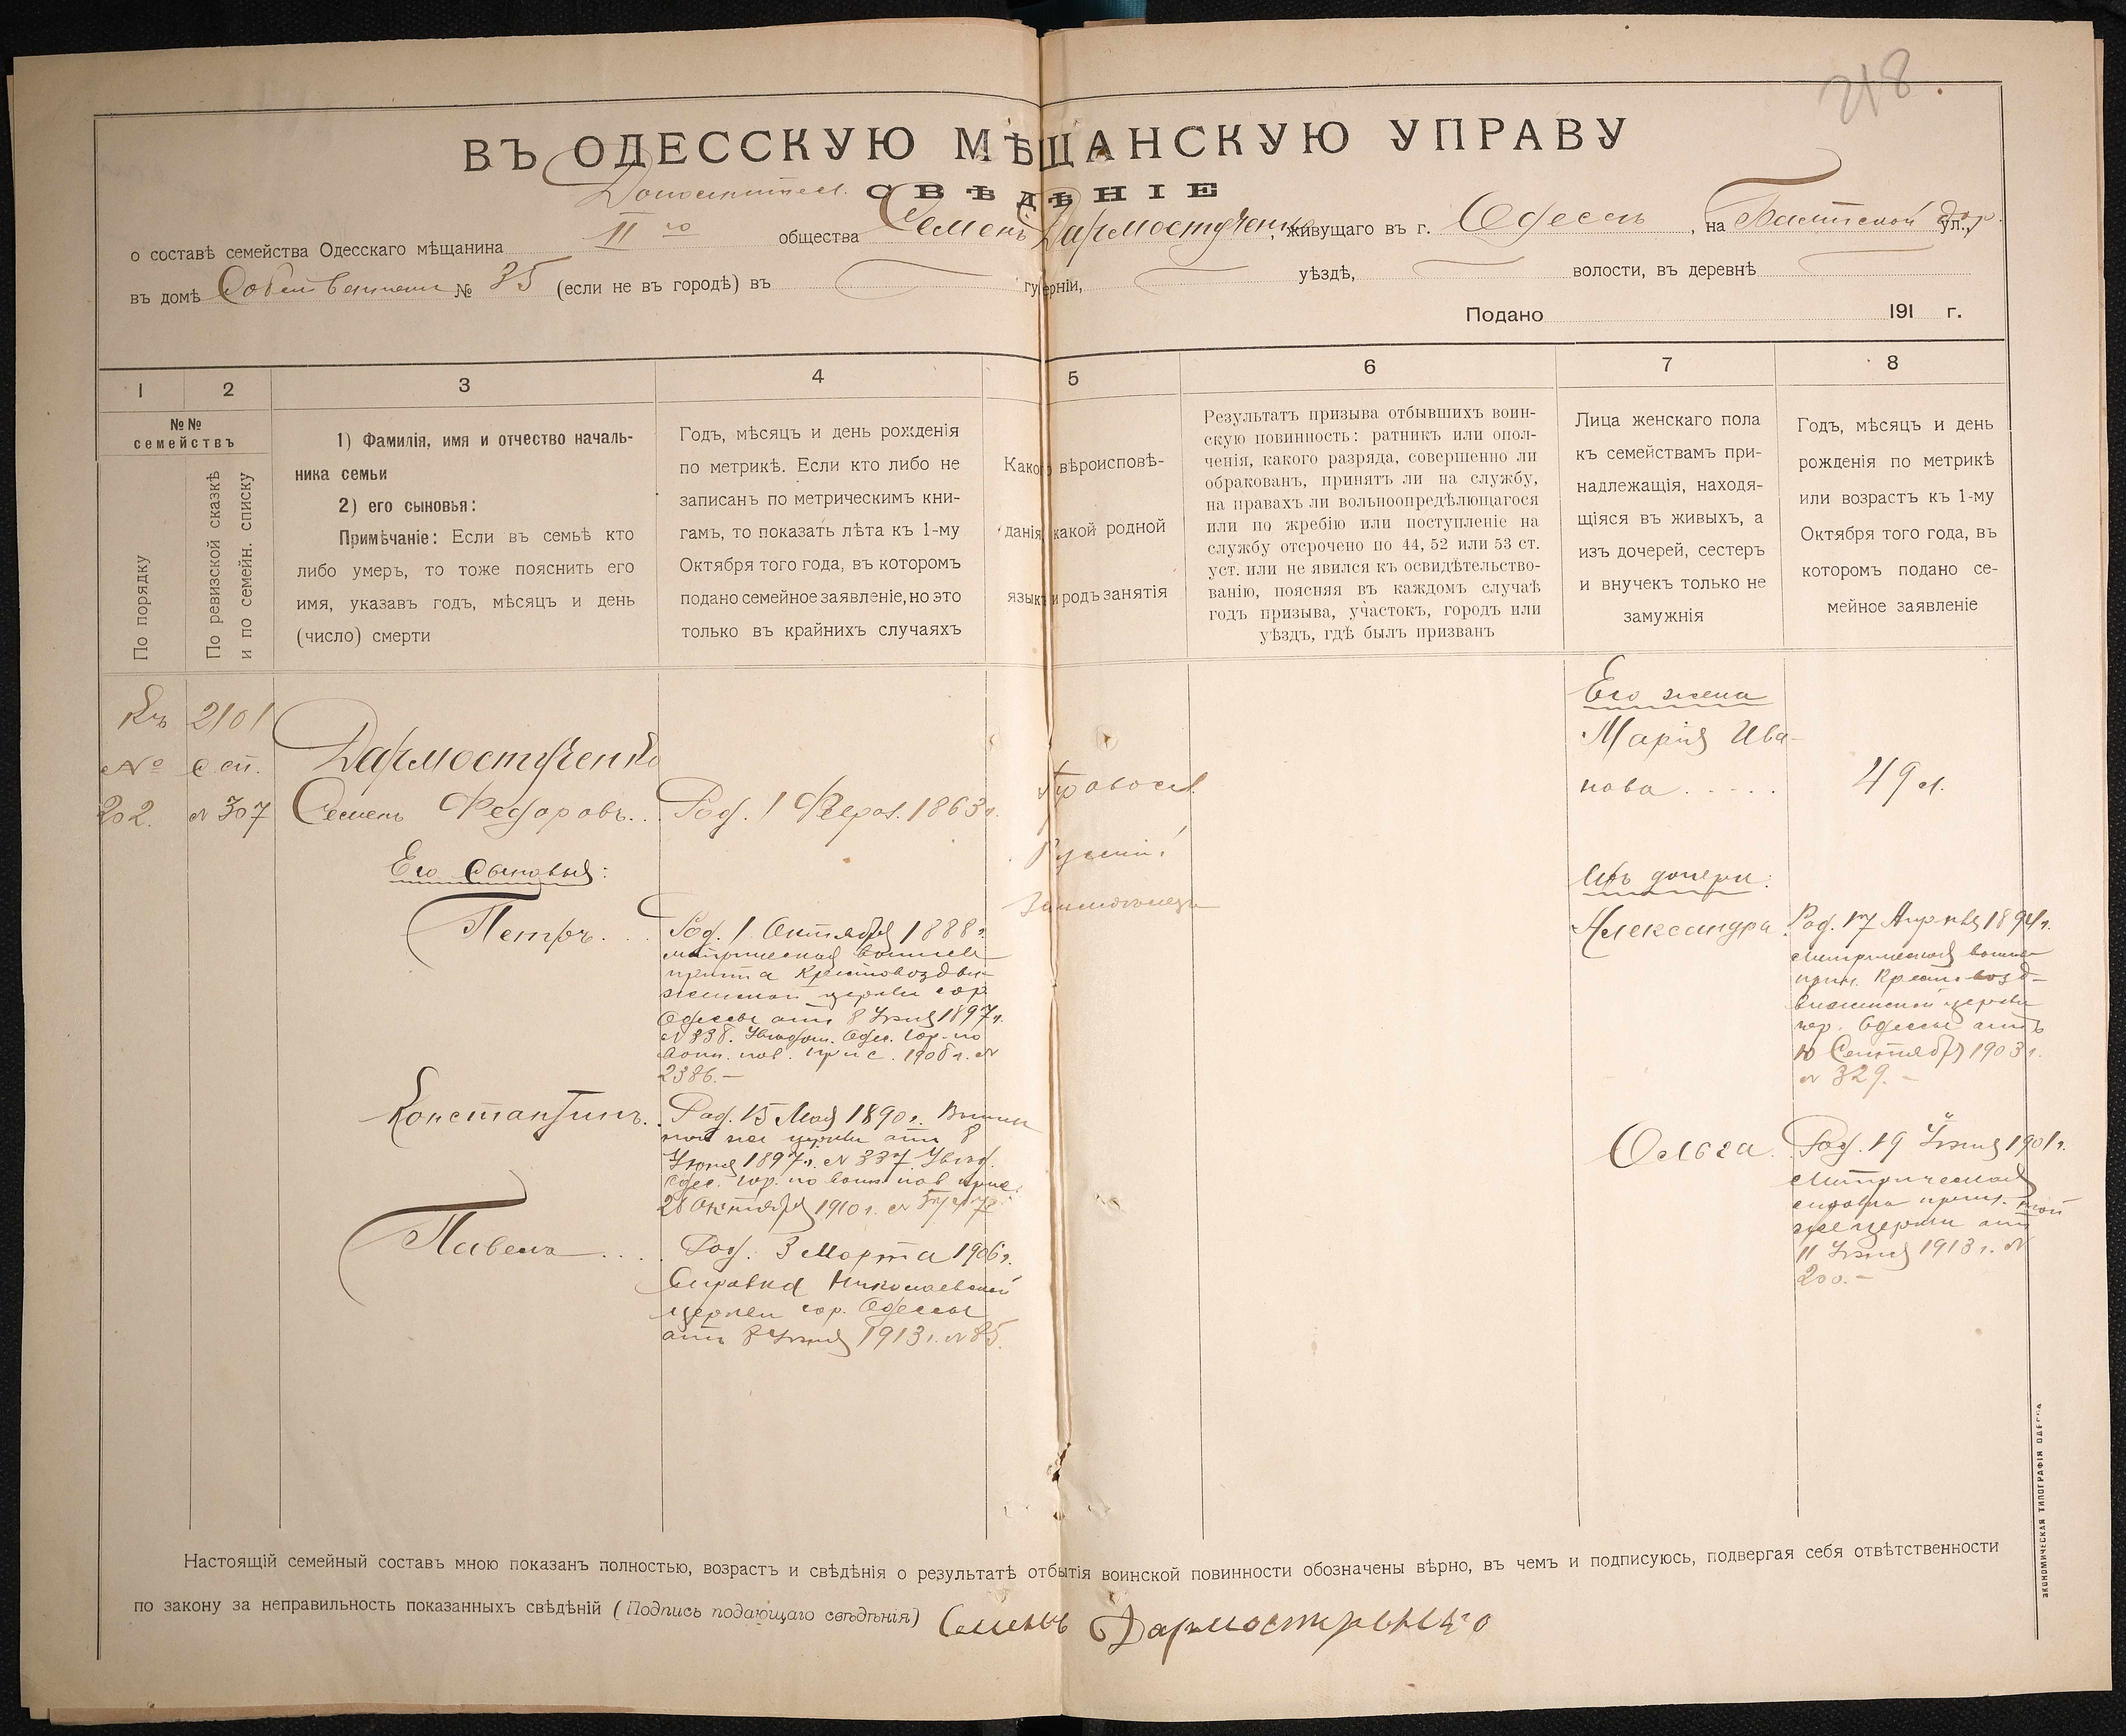 218
ВЪ ОДЕССКУЮ МѢЩАНСКУЮ УПРАВУ
СВѢДѢНІЕ
о составѣ семейства Одесскаго мѣщанина II го общества Семенъ , живущаго въ г. Одессѣ , на Балтской дор. ул.,
въ домѣ № 35 (если не въ городѣ) въ губерніи, уѣздѣ, волости, въ деревнѣ
Подано 191 г.
1 2 3 4 5 6 7 8
№№
семействъ
По порядку
По ревизской сказкѣ
и по семейн. списку
1) Фамилія, имя и отчество началь-
ника семьи
2) его сыновья:
Примѣчаніе: Если въ семьѣ кто
либо умеръ, то тоже пояснить его
имя, указавъ годъ, мѣсяцъ и день
(число) смерти
Годъ, мѣсяцъ и день рожденія
по метрикѣ. Если кто либо не
записанъ по метрическимъ кни-
гамъ, то показать лѣта къ 1-му
Октября того года, въ которомъ
подано семейное заявленіе, но это
только въ крайнихъ случаяхъ
Какого вѣроисповѣ-
данія, какой родной
языкъ и родъ занятія
Результатъ призыва отбывшихъ воин-
скую повинность: ратникъ или опол-
ченія, какого разряда, совершенно ли
обракованъ, принятъ ли на службу,
на правахъ ли вольноопредѣляющагося
или по жребію или поступленіе на
службу отсрочено по 44, 52 или 53 ст.
уст. или не явился къ освидѣтельство-
ванію, поясняя въ каждомъ случаѣ
годъ призыва, участокъ, городъ или
уѣздъ, гдѣ былъ призванъ
Лица женскаго пола
къ семействамъ при-
надлежащія, находя-
щіяся въ живыхъ, а
изъ дочерей, сестеръ
и внучекъ только не
замужнія
Годъ, мѣсяцъ и день
рожденія по метрикѣ
или возрастъ къ 1-му
Октября того года, въ
которомъ подано се-
мейное заявленіе
Къ
№
202.
2101
с сп.
№ 307
Семенъ Федоровъ..
Род. 1 Феврал. 1863 г.
Правосл.
Русский
Его сыновья:
Петръ. . .
Род. 1 Октября 1888 г.
метрическая
причта Крестовоздви-
женской церкви гор.
Одессы отъ 8 Іюня 1897 г.
№ 338. Одес. гор. по
воин. пов. прис. 1908 г. №
2386.—
Константинъ.
Род. 15 Мая 1890 г.
той же церкви отъ 8
Іюня 1897 г. № 337.
Одес. гор. по воин. пов. прис.
28 Октября 1910 г. №
Павелъ . . . .
Род. 3 Марта 1906 г.
Справка Николаевской
церкви гор. Одессы
отъ 8 Іюня 1913 г. № 85.
Его жена
Марія Ива-
нова . . . . .
49 л.
Ихъ дочери:
Александра.
Род. 17 Апрѣля 1894 г.
метрическая
прич. Крестовозд-
виженской церкви
гор. Одессы отъ
10 Сентября 1903 г.
№ 329.—
Ольга.
Род. 19 Іюня 1901 г.
Метрическая
справка прич. той
же церкви отъ
11 Іюня 1913 г. №
200.—
Настоящій семейный составъ мною показанъ полностью, возрастъ и свѣдѣнія о результатѣ отбытія воинской повинности обозначены вѣрно, въ чемъ и подписуюсь, подвергая себя отвѣтственности
по закону за неправильность показанныхъ свѣдѣній (Подпись подающаго свѣдѣнія) Семенъ
ЭКОНОМИЧЕСКАЯ ТИПОГРАФІЯ ОДЕССА